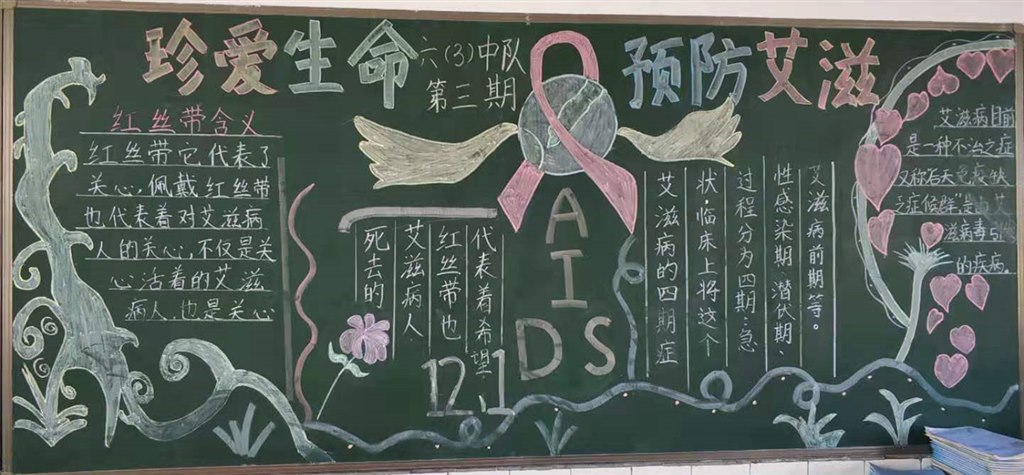 珍爱生命
六(3)中队
第三期
预防艾滋
红丝带含义
红丝带它代表了
关心,佩戴红丝带
也代表着对艾滋病
人的关心,不仅是关
心活着的艾滋
病人,也是关心
死去的
艾滋病人、
红丝带也
代表着希望
AIDS
12.1
艾滋病的四期症
状,临床上将这个
过程分为四期:急
性感染期、潜伏期、
艾滋病前期等。
艾滋病目前
是一种不治之症
又称后天免疫缺
乏症候群
滋病毒
的疾病.